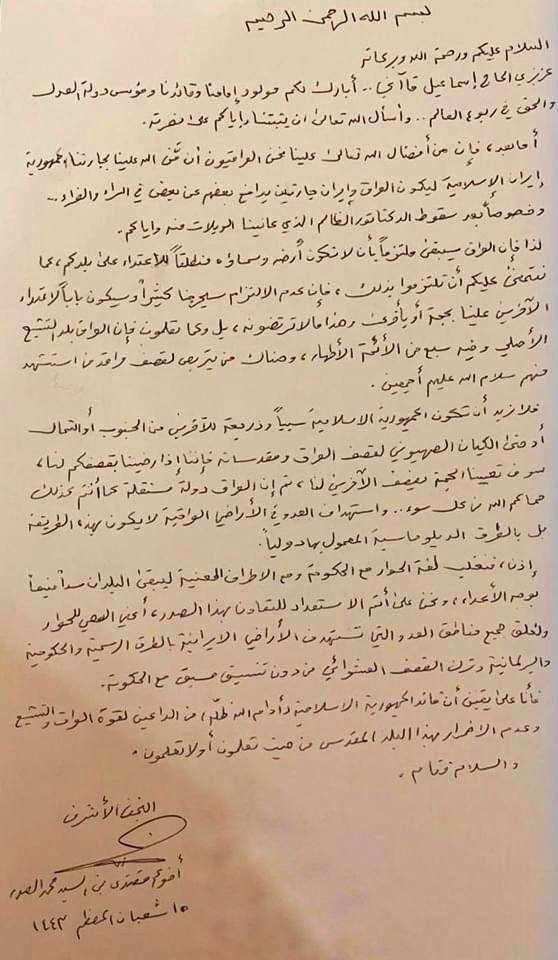 بسم الله الرحمن الرحيم
السلام عليكم ورحمة الله وبركاته
عزيزي الحاج إسماعيل قاآني .. أبارك لكم مولود إمامنا وقائدنا ومؤسس دولة العدل
والحق في ربوع العالم .. وأسأل الله تعالى ان يثبتنا وإياكم على نصرته.
أما بعد، فإن من أفضال الله تعالى علينا نحن العراقيون أن مَنَّ الله علينا بجارتنا الجمهورية
إيران الإسلامية ليكون العراق وإيران جارتين يدافع بعضهم عن بعض في السراء والضراء ..
وخصوصاً بعد سقوط الدكتاتور الظالم الذي عانينا الويلات منه واياكم.
لذا فإن العراق سيبقى ملتزماً بأن لا تكون أرضه وسماؤه منطلقاً للإعتداء على بلدكم، مما
نتمنى عليكم أن تلتزموا بذلك، فإن عدم الالتزام سيحرجنا كثيراً وسيكون باباً لاعتداء
الآخرين علينا بحجة أو بأخرى وهذا ما لا ترتضونه، بل وكما تعلمون فإن العراق بلد التشيع
الأصلي وفيه سبع من الأئمة الأطهار، وهناك من يتربص لقصف مراقد من استشهد
منهم سلام الله عليهم أجمعين.
فلا نريد أن تكون الجمهورية الاسلامية سبباً وذريعة للآخرين من الجنوب أو الشمال
أو حتى الكيان الصهيوني لقصف العراق ومقدساته فإننا إذا رضينا بقصفكم لنا،
سوف تعيينا الحجة بقصف الآخرين لنا، ثم إن العراق دولة مستقلة كما أنتم كذلك
حماكم الله من كل سوء .. واستهداف العدو في الأراضي العراقية لا يكون بهذه الطريقة
بل بالطرق الدبلوماسية المعمول بها دولياً.
إذن، فنغلب لغة الحوار مع الحكومة ومع الاطراف المعنية ليبقى البلدان سداً منيعاً
بوجه الأعداء، ونحن على أتم الاستعداد للتعاون بهذا الصدد، أعني السعي للحوار
ولغلق جميع مناطق العدو التي تستهدف الأراضي الايرانية بالطرق الرسمية والحكومية
والبرلمانية وترك القصف العشوائي من دون تنسيق مسبق مع الحكومة.
فأنا على يقين أن قائد الجمهورية الاسلامية (أدام الله ظله) من الداعين لقوة العراق والتشيع
وعدم الاضرار بهذا البلد المقدس من حيث تعلمون أو لا تعلمون.
والسلام ختام.
النجف الأشرف
أخوكم مقتدى بن السيد محمد الصدر
١٥ شعبان المعظم ١٤٤٣